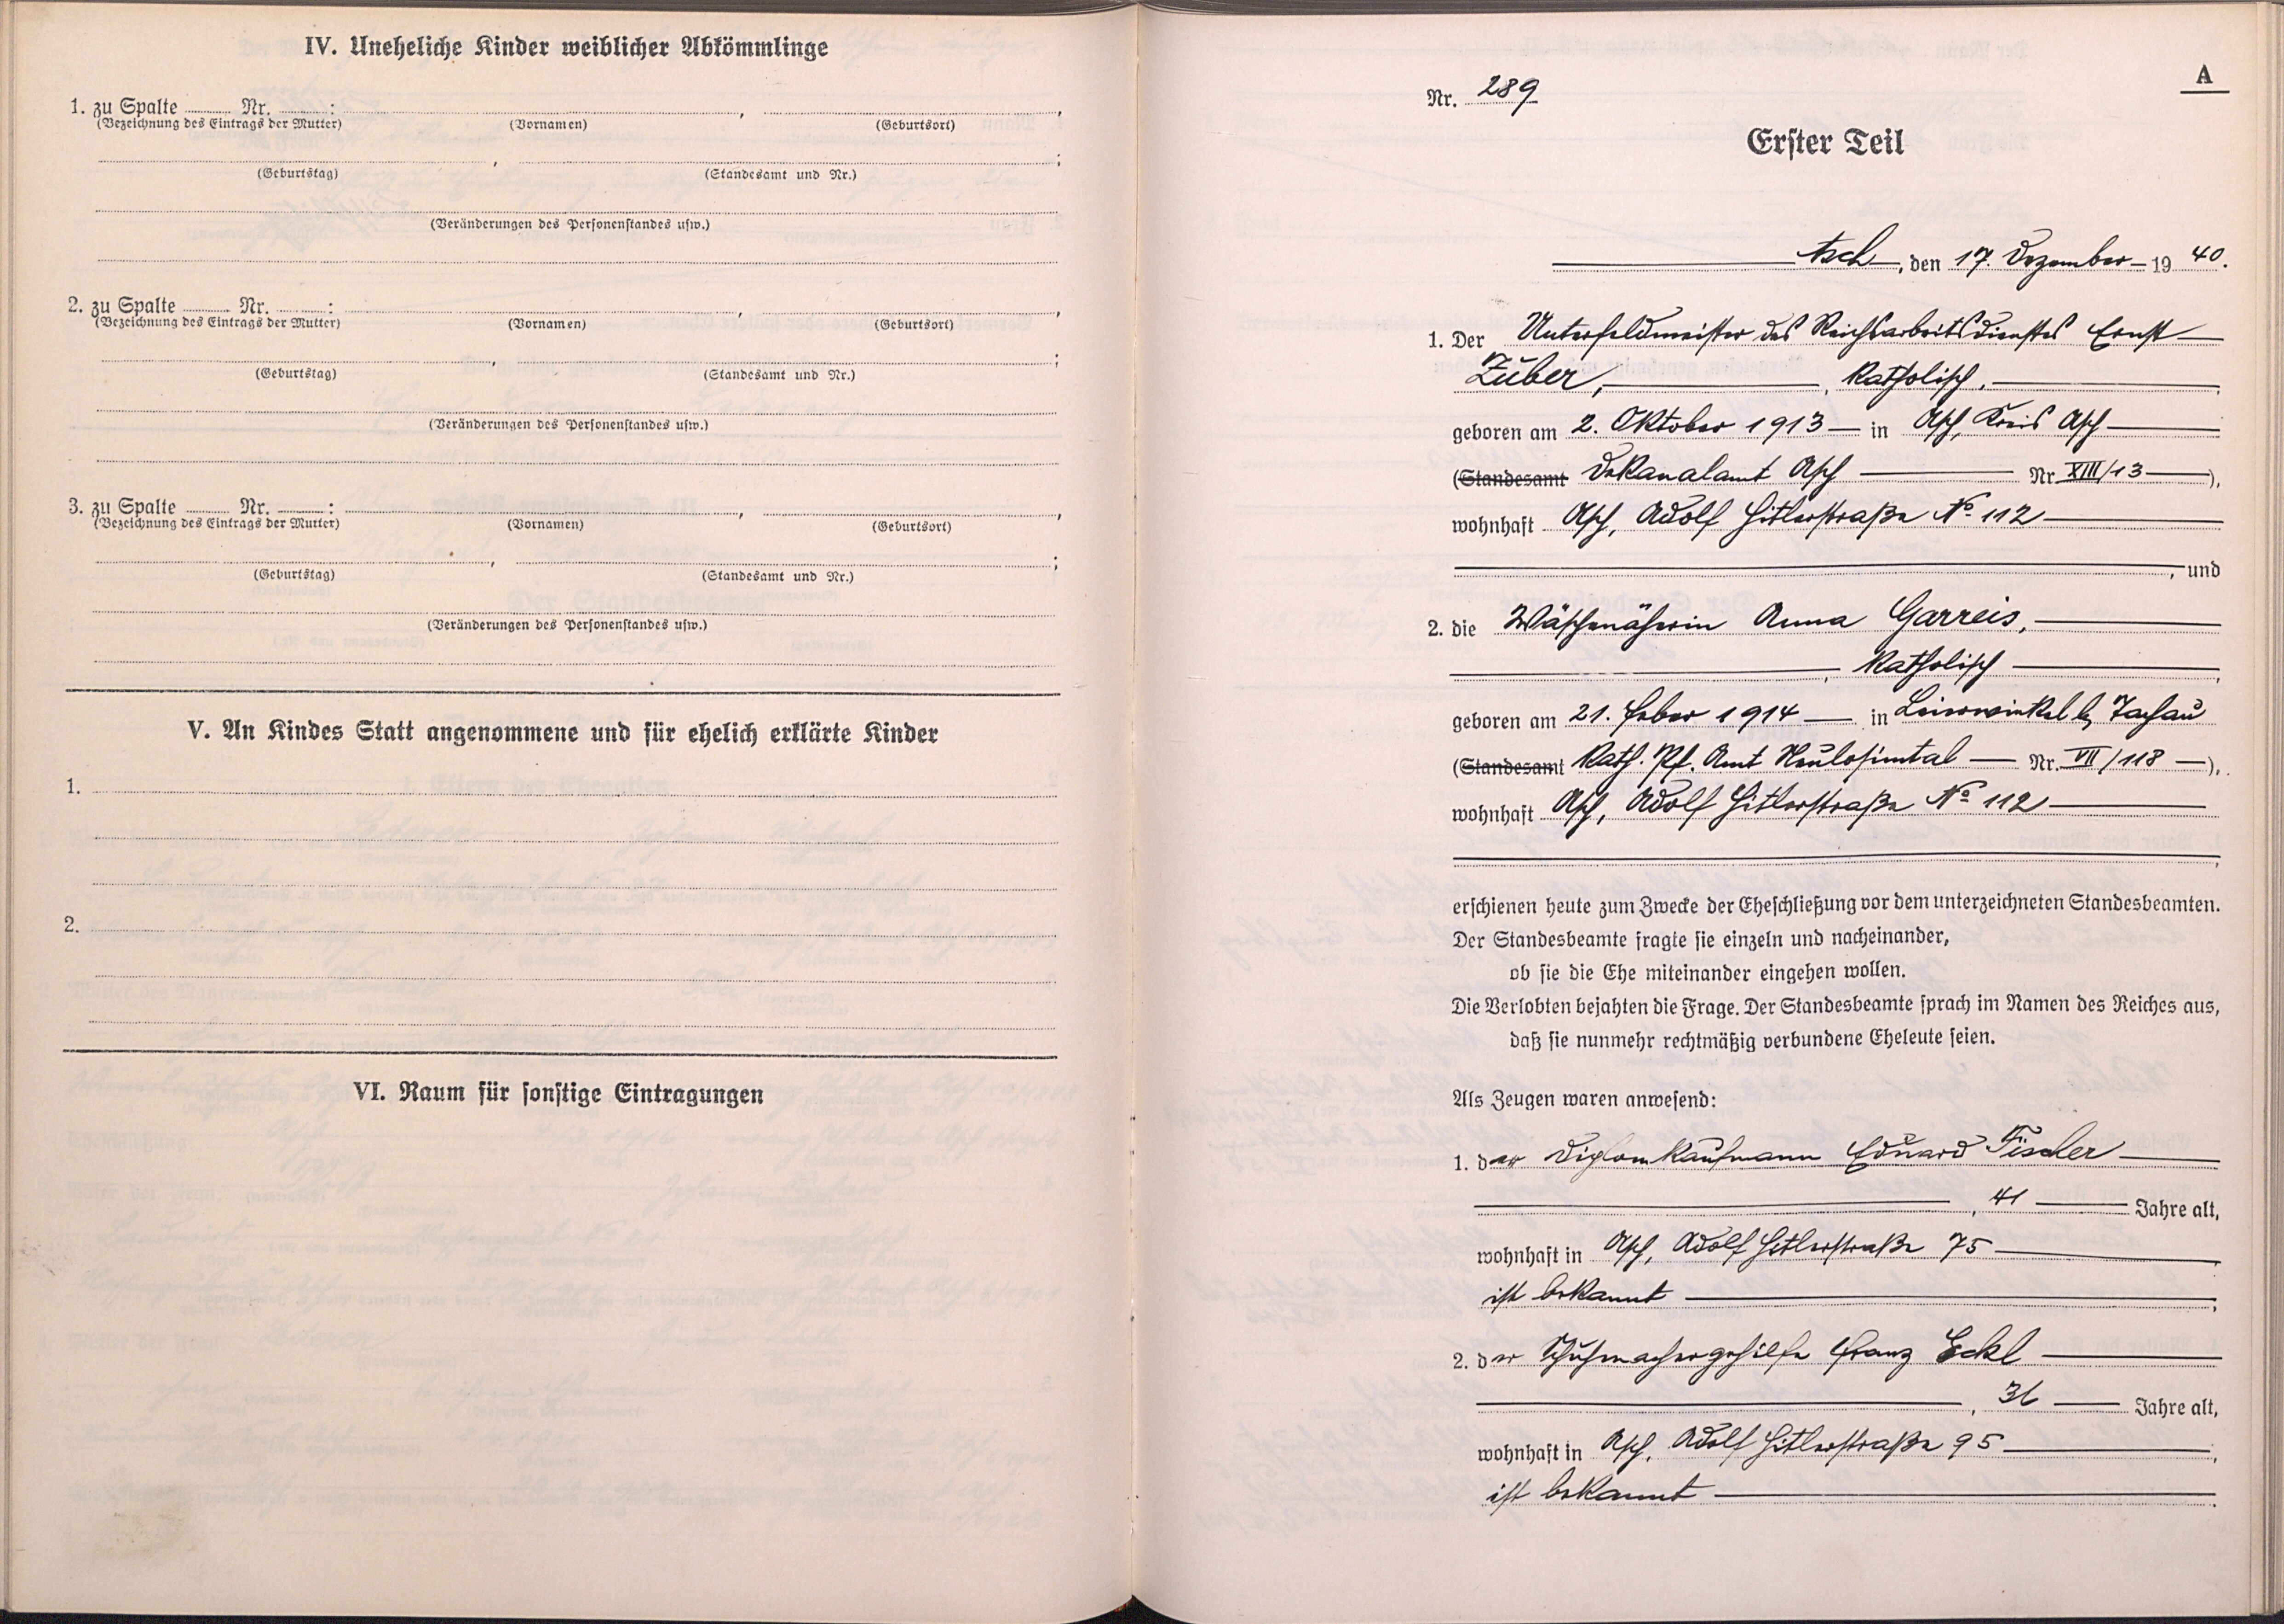 IV. Uneheliche Kinder weiblicher Abkömmlinge
1. zu Spalte ........ Nr. ........ : , ,
(Bezeichnung des Eintrags der Mutter) (Vornamen) (Geburtsort)
, ;
(Geburtstag) (Standesamt und Nr.)
(Veränderungen des Personenstandes usw.)
2. zu Spalte ........ Nr. ........ : , ,
(Bezeichnung des Eintrags der Mutter) (Vornamen) (Geburtsort)
, ;
(Geburtstag) (Standesamt und Nr.)
(Veränderungen des Personenstandes usw.)
3. zu Spalte ........ Nr. ........ : , ,
(Bezeichnung des Eintrags der Mutter) (Vornamen) (Geburtsort)
, ;
(Geburtstag) (Standesamt und Nr.)
(Veränderungen des Personenstandes usw.)
V. An Kindes Statt angenommene und für ehelich erklärte Kinder
1.
2.
VI. Raum für sonstige Eintragungen
A
Nr. 289
Erster Teil
Asch, den 17. Dezember 1940.
1. Der Unterfeldmeister des Reichsarbeitsdienstes Ernst
Zuber, , katholisch,
geboren am 2. Oktober 1913 in Asch, Kreis Asch
(Standesamt Dekanalamt Asch Nr. XIII/13 ),
wohnhaft Asch, Adolf Hitlerstraße No 112
, und
2. die Wäschenäherin Anna Garreis,
, katholisch ,
geboren am 21. Feber 1914 in b. Tachau
(Standesamt Kath. Pf. Amt Neulosimtal Nr. VII/118 ),
wohnhaft Asch, Adolf Hitlerstraße No 112
,
erschienen heute zum Zwecke der Eheschließung vor dem unterzeichneten Standesbeamten.
Der Standesbeamte fragte sie einzeln und nacheinander,
ob sie die Ehe miteinander eingehen wollen.
Die Verlobten bejahten die Frage. Der Standesbeamte sprach im Namen des Reiches aus,
daß sie nunmehr rechtmäßig verbundene Eheleute seien.
Als Zeugen waren anwesend:
1. der Diplomkaufmann Eduard Fischer
, 41 Jahre alt,
wohnhaft in Asch, Adolf Hitlerstraße 75
ist bekannt ;
2. der Schuhmachergehilfe Franz Eckl
, 36 Jahre alt,
wohnhaft in Asch, Adolf Hitlerstraße 95 ,
ist bekannt .